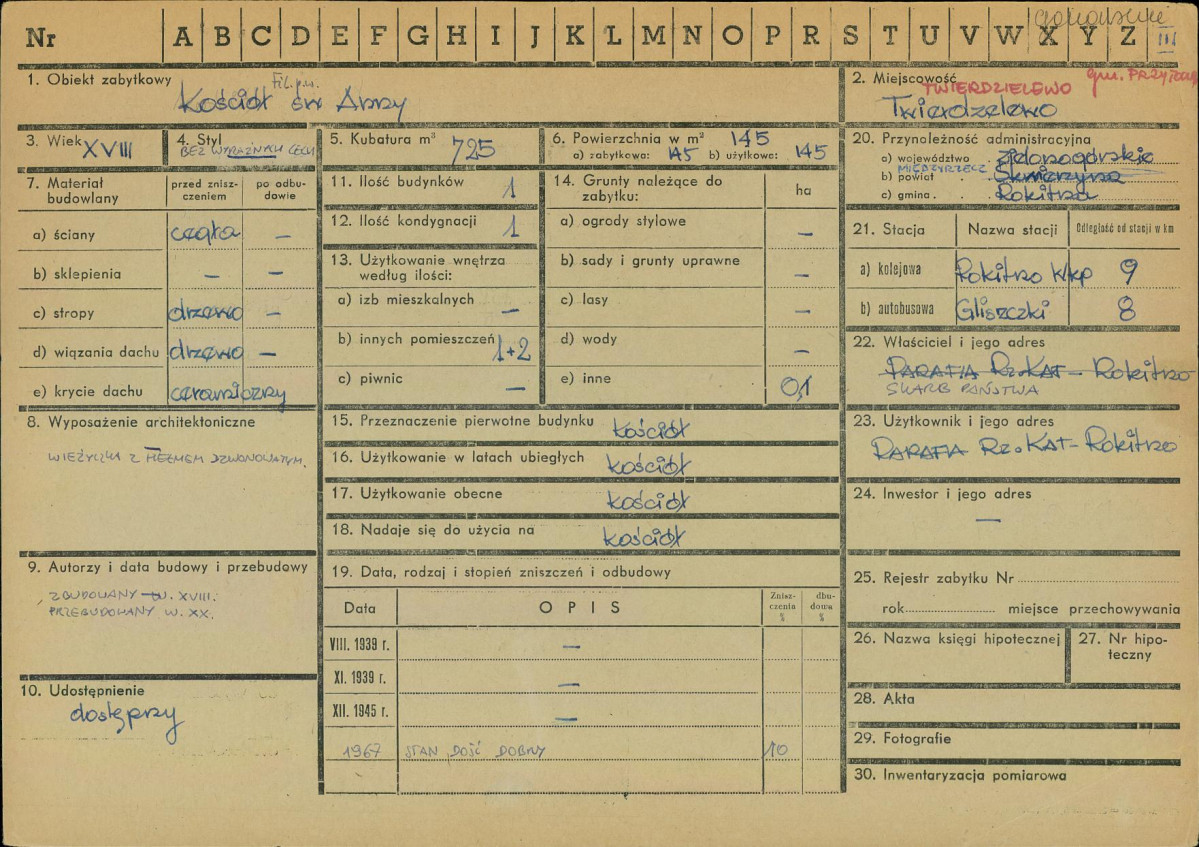 Nr A B C D E F G H I J K L M N O P R S T U V W X Y Z III
1. Obiekt zabytkowy
Fil. p.w.
Kościół św Anny
2. Miejscowość
TWIERDZIELEWO
Twierdzelewo
3. Wiek XVIII
4. Styl
BEZ WYRAŹNYCH CECH
5. Kubatura m³ 725
6. Powierzchnia w m² 145
a) zabytkowa: 145 b) użytkowa: 145
20. Przynależność administracyjna
a) województwo Zielonogórskie
MIĘDZYRZECZ
b) powiat Skwierzyna
c) gmina Rokitno
7. Materiał budowlany
przed zniszczeniem
po odbudowie
a) ściany cegła –
b) sklepienia – –
c) stropy drzewo –
d) wiązania dachu drzewo –
e) krycie dachu ceramiczny
11. Ilość budynków 1
12. Ilość kondygnacji 1
13. Użytkowanie wnętrza
według ilości:
a) izb mieszkalnych –
b) innych pomieszczeń 1+2
c) piwnic –
14. Grunty należące do
zabytku: ha
a) ogrody stylowe –
b) sady i grunty uprawne –
c) lasy –
d) wody –
e) inne 0,1
21. Stacja Nazwa stacji Odległość od stacji w km
a) kolejowa Rokitno Wkp 9
b) autobusowa Gliszczki 8
22. Właściciel i jego adres
PARAFIA Rz.KAT – Rokitno
SKARB PAŃSTWA
8. Wyposażenie architektoniczne
WIEŻYCZKA Z HEŁMEM DZWONOWATYM.
15. Przeznaczenie pierwotne budynku kościół
16. Użytkowanie w latach ubiegłych kościół
17. Użytkowanie obecne kościół
18. Nadaje się do użycia na kościół
23. Użytkownik i jego adres
PARAFIA Rz.KAT – Rokitno
24. Inwestor i jego adres
–
9. Autorzy i data budowy i przebudowy
ZBUDOWANY W. XVIII.
PRZEBUDOWANY W. XX.
10. Udostępnienie
dostępny
19. Data, rodzaj i stopień zniszczeń i odbudowy
Data OPIS Zniszczenia % dbudowa %
VIII. 1939 r. –
XI. 1939 r. –
XII. 1945 r. –
1967 STAN DOŚĆ DOBRY 10
25. Rejestr zabytku Nr
rok miejsce przechowywania
26. Nazwa księgi hipotecznej
27. Nr hipoteczny
28. Akta
29. Fotografie
30. Inwentaryzacja pomiarowa